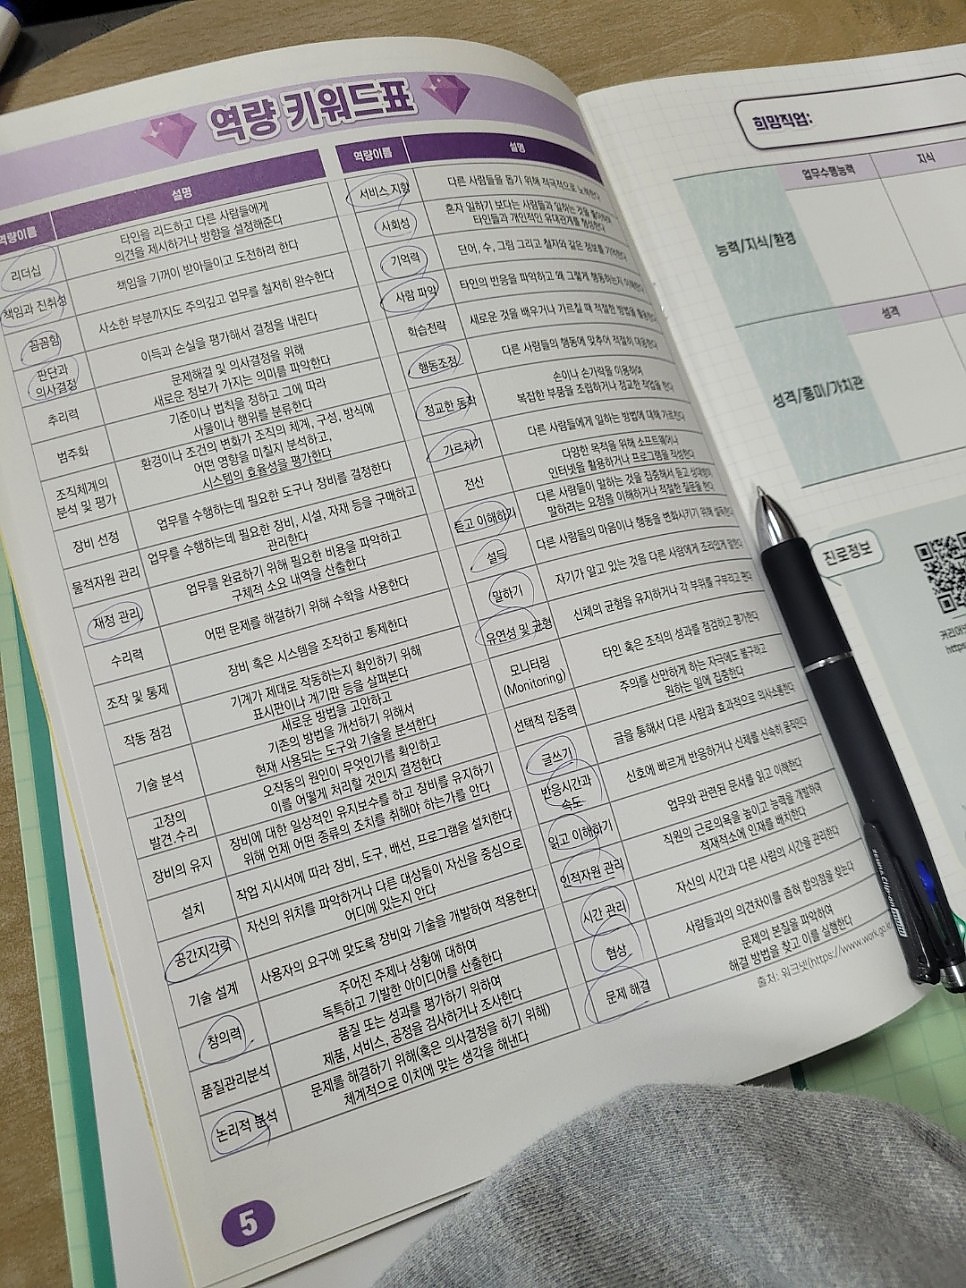 역량 키워드표
역량이름
설명
리더십
타인을 리드하고 다른 사람들에게
의견을 제시하거나 방향을 설정해준다
책임과 진취성
책임을 기꺼이 받아들이고 도전하려 한다
꼼꼼함
사소한 부분까지도 주의깊고 업무를 철저히 완수한다
판단과
의사결정
이득과 손실을 평가해서 결정을 내린다
추리력
문제해결 및 의사결정을 위해
새로운 정보가 가지는 의미를 파악한다
범주화
기준이나 법칙을 정하고 그에 따라
사물이나 행위를 분류한다
조직체계의
분석 및 평가
환경이나 조건의 변화가 조직의 체계, 구성, 방식에
어떤 영향을 미칠지 분석하고,
시스템의 효율성을 평가한다
장비 선정
업무를 수행하는데 필요한 도구나 장비를 결정한다
물적자원 관리
업무를 수행하는데 필요한 장비, 시설, 자재 등을 구매하고
관리한다
재정 관리
업무를 완료하기 위해 필요한 비용을 파악하고
구체적 소요 내역을 산출한다
수리력
어떤 문제를 해결하기 위해 수학을 사용한다
조작 및 통제
장비 혹은 시스템을 조작하고 통제한다
작동 점검
기계가 제대로 작동하는지 확인하기 위해
표시판이나 계기판 등을 살펴본다
기술 분석
새로운 방법을 고안하고
기존의 방법을 개선하기 위해서
현재 사용되는 도구와 기술을 분석한다
고장의
발견.수리
오작동의 원인이 무엇인가를 확인하고
이를 어떻게 처리할 것인지 결정한다
장비의 유지
장비에 대한 일상적인 유지보수를 하고 장비를 유지하기
위해 언제 어떤 종류의 조치를 취해야 하는가를 안다
설치
작업 지시서에 따라 장비, 도구, 배선, 프로그램을 설치한다
공간지각력
자신의 위치를 파악하거나 다른 대상들이 자신을 중심으로
어디에 있는지 안다
기술 설계
사용자의 요구에 맞도록 장비와 기술을 개발하여 적용한다
창의력
주어진 주제나 상황에 대하여
독특하고 기발한 아이디어를 산출한다
품질관리분석
품질 또는 성과를 평가하기 위하여
제품, 서비스, 공정을 검사하거나 조사한다
논리적 분석
문제를 해결하기 위해(혹은 의사결정을 하기 위해)
체계적으로 이치에 맞는 생각을 해낸다
역량이름
설명
서비스 지향
다른 사람들을 돕기 위해 적극적으로 노력한다
사회성
혼자 일하기 보다는 사람들과 일하는 것을
타인들과 개인적인 유대관계를 형성한다
기억력
단어, 수, 그림 그리고 철자와 같은 정보를 기억한다
사람 파악
타인의 반응을 파악하고 왜 그렇게 행동하는지 이해한다
학습전략
새로운 것을 배우거나 가르칠 때 적절한 방법을 활용한다
행동조정
다른 사람들의 행동에 맞추어 적절히 대응한다
정교한 동작
손이나 손가락을 이용하여
복잡한 부품을 조립하거나 정교한 작업을 한다
가르치기
다른 사람들에게 일하는 방법에 대해 가르친다
전산
다양한 목적을 위해 소프트웨어나
인터넷을 활용하거나 프로그램을 작성한다
듣고 이해하기
다른 사람들이 말하는 것을 집중해서 듣고 상대방이
말하려는 요점을 이해하거나 적절한 질문을 한다
설득
다른 사람들의 마음이나 행동을 변화시키기 위해 설득한다
말하기
자기가 알고 있는 것을 다른 사람에게 조리있게 말한다
유연성 및 균형
신체의 균형을 유지하거나 각 부위를 구부리고 편다
모니터링
(Monitoring)
타인 혹은 조직의 성과를 점검하고 평가한다
선택적 집중력
주의를 산만하게 하는 자극에도 불구하고
원하는 일에 집중한다
글쓰기
글을 통해서 다른 사람과 효과적으로 의사소통한다
반응시간과
속도
신호에 빠르게 반응하거나 신체를 신속히 움직인다
읽고 이해하기
업무와 관련된 문서를 읽고 이해한다
인적자원 관리
직원의 근로의욕을 높이고 능력을 개발하여
적재적소에 인재를 배치한다
시간 관리
자신의 시간과 다른 사람의 시간을 관리한다
협상
사람들과의 의견차이를 좁혀 합의점을 찾는다
문제 해결
문제의 본질을 파악하여
해결 방법을 찾고 이를 실행한다
출처: 워크넷(https://www.work.go.kr
5
희망직업:
업무수행능력
지식
능력/지식/환경
성격
성격/흥미/가치관
진로정보